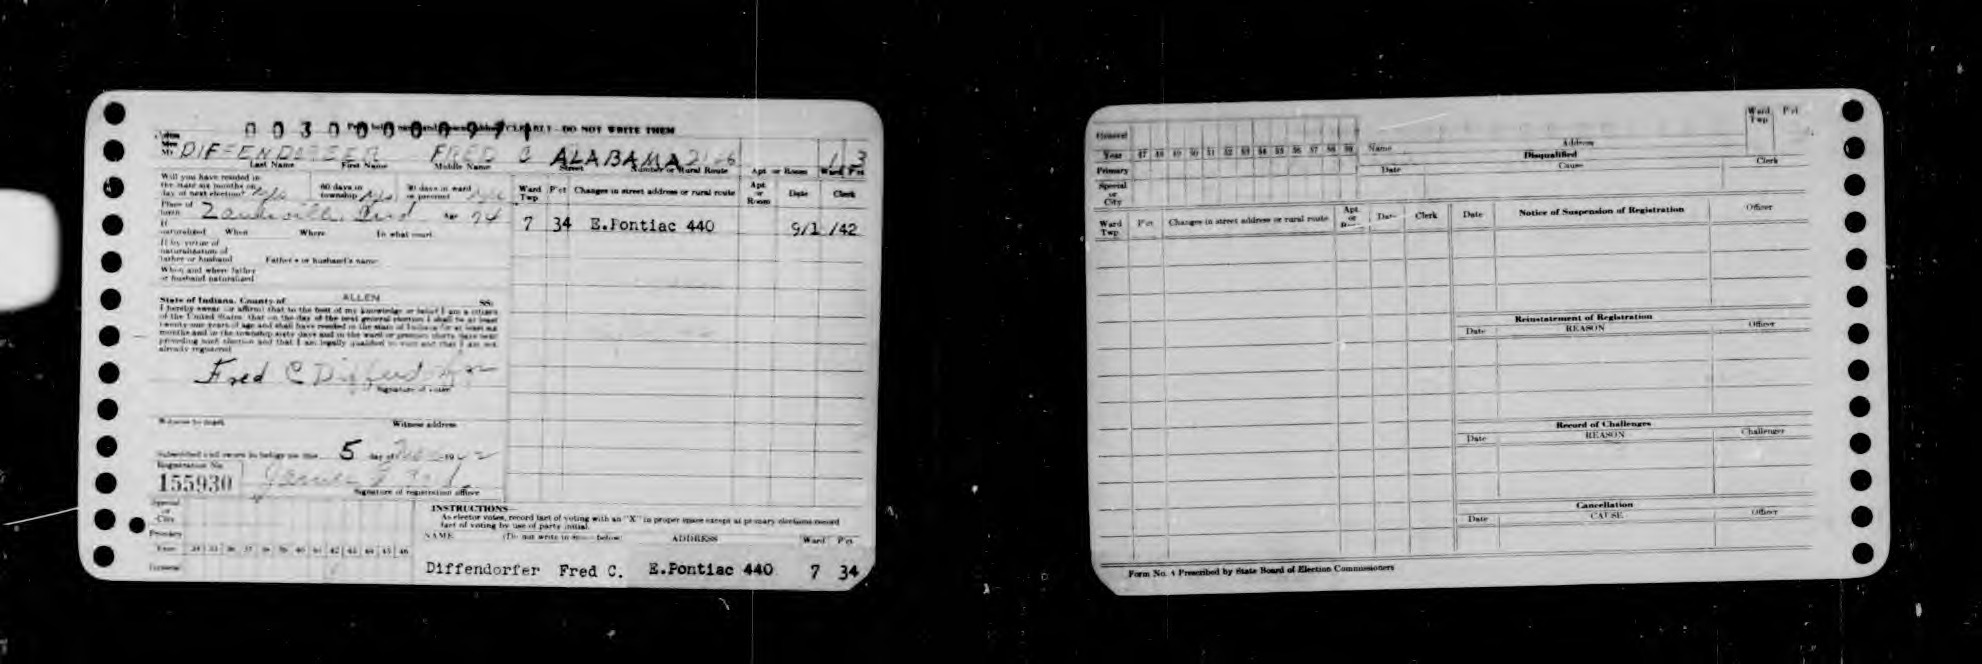 0030000971
CLEARLY - DO NOT WRITE THEM
DIFFENDORFER FRED C ALABAMA 2126 1 3
Last Name First Name Middle Name Street Number or Rural Route Apt or Room Ward Pct
Will you have resided in
the state six months on
day of next election? 60 days in
township 30 days in ward
or precinct
Ward
Twp P'ct Changes in street address or rural route Apt
or
Room Date Clerk
Place of
birth Ind Age 74
If
naturalized When Where In what court
7 34 E.Pontiac 440 9/1/42
If by virtue of
naturalization of
father or husband Father's or husband's name
When and where father
or husband naturalized
State of Indiana, County of ALLEN SS:
I hereby swear or affirm that to the best of my knowledge or belief I am a citizen
of the United States, that on the day of the next general election I shall be at least
twenty-one years of age and shall have resided in the state of Indiana for at least six
months and in the township sixty days and in the ward or precinct thirty days next
preceding such election and that I am legally qualified to vote and that I am not
already registered
Fred C Diffendorfer
Signature of voter
Witness to mark Witness address
Subscribed and sworn to before me this 5 day of 19
Registration No.
155930
Signature of registration officer
Special
or
City
Primary
Year 34 35 36 37 38 39 40 41 42 43 44 45 46
General
INSTRUCTIONS
As elector votes, record fact of voting with an "X" in proper space except at primary elections record
fact of voting by use of party initial.
NAME (Do not write in space below) ADDRESS Ward P'ct
Diffendorfer Fred C. E.Pontiac 440 7 34
General
Year 47 48 49 50 51 52 53 54 55 56 57 58 59
Primary
Special
or
City
Name Address Ward
Twp P'ct
Disqualified
Date Cause Clerk
Ward
Twp P'ct Changes in street address or rural route Apt
or
Room Date Clerk
Date Notice of Suspension of Registration Officer
Reinstatement of Registration
Date REASON Officer
Record of Challenges
Date REASON Challenger
Cancellation
Date CAUSE Officer
Form No. 4 Prescribed by State Board of Election Commissioners